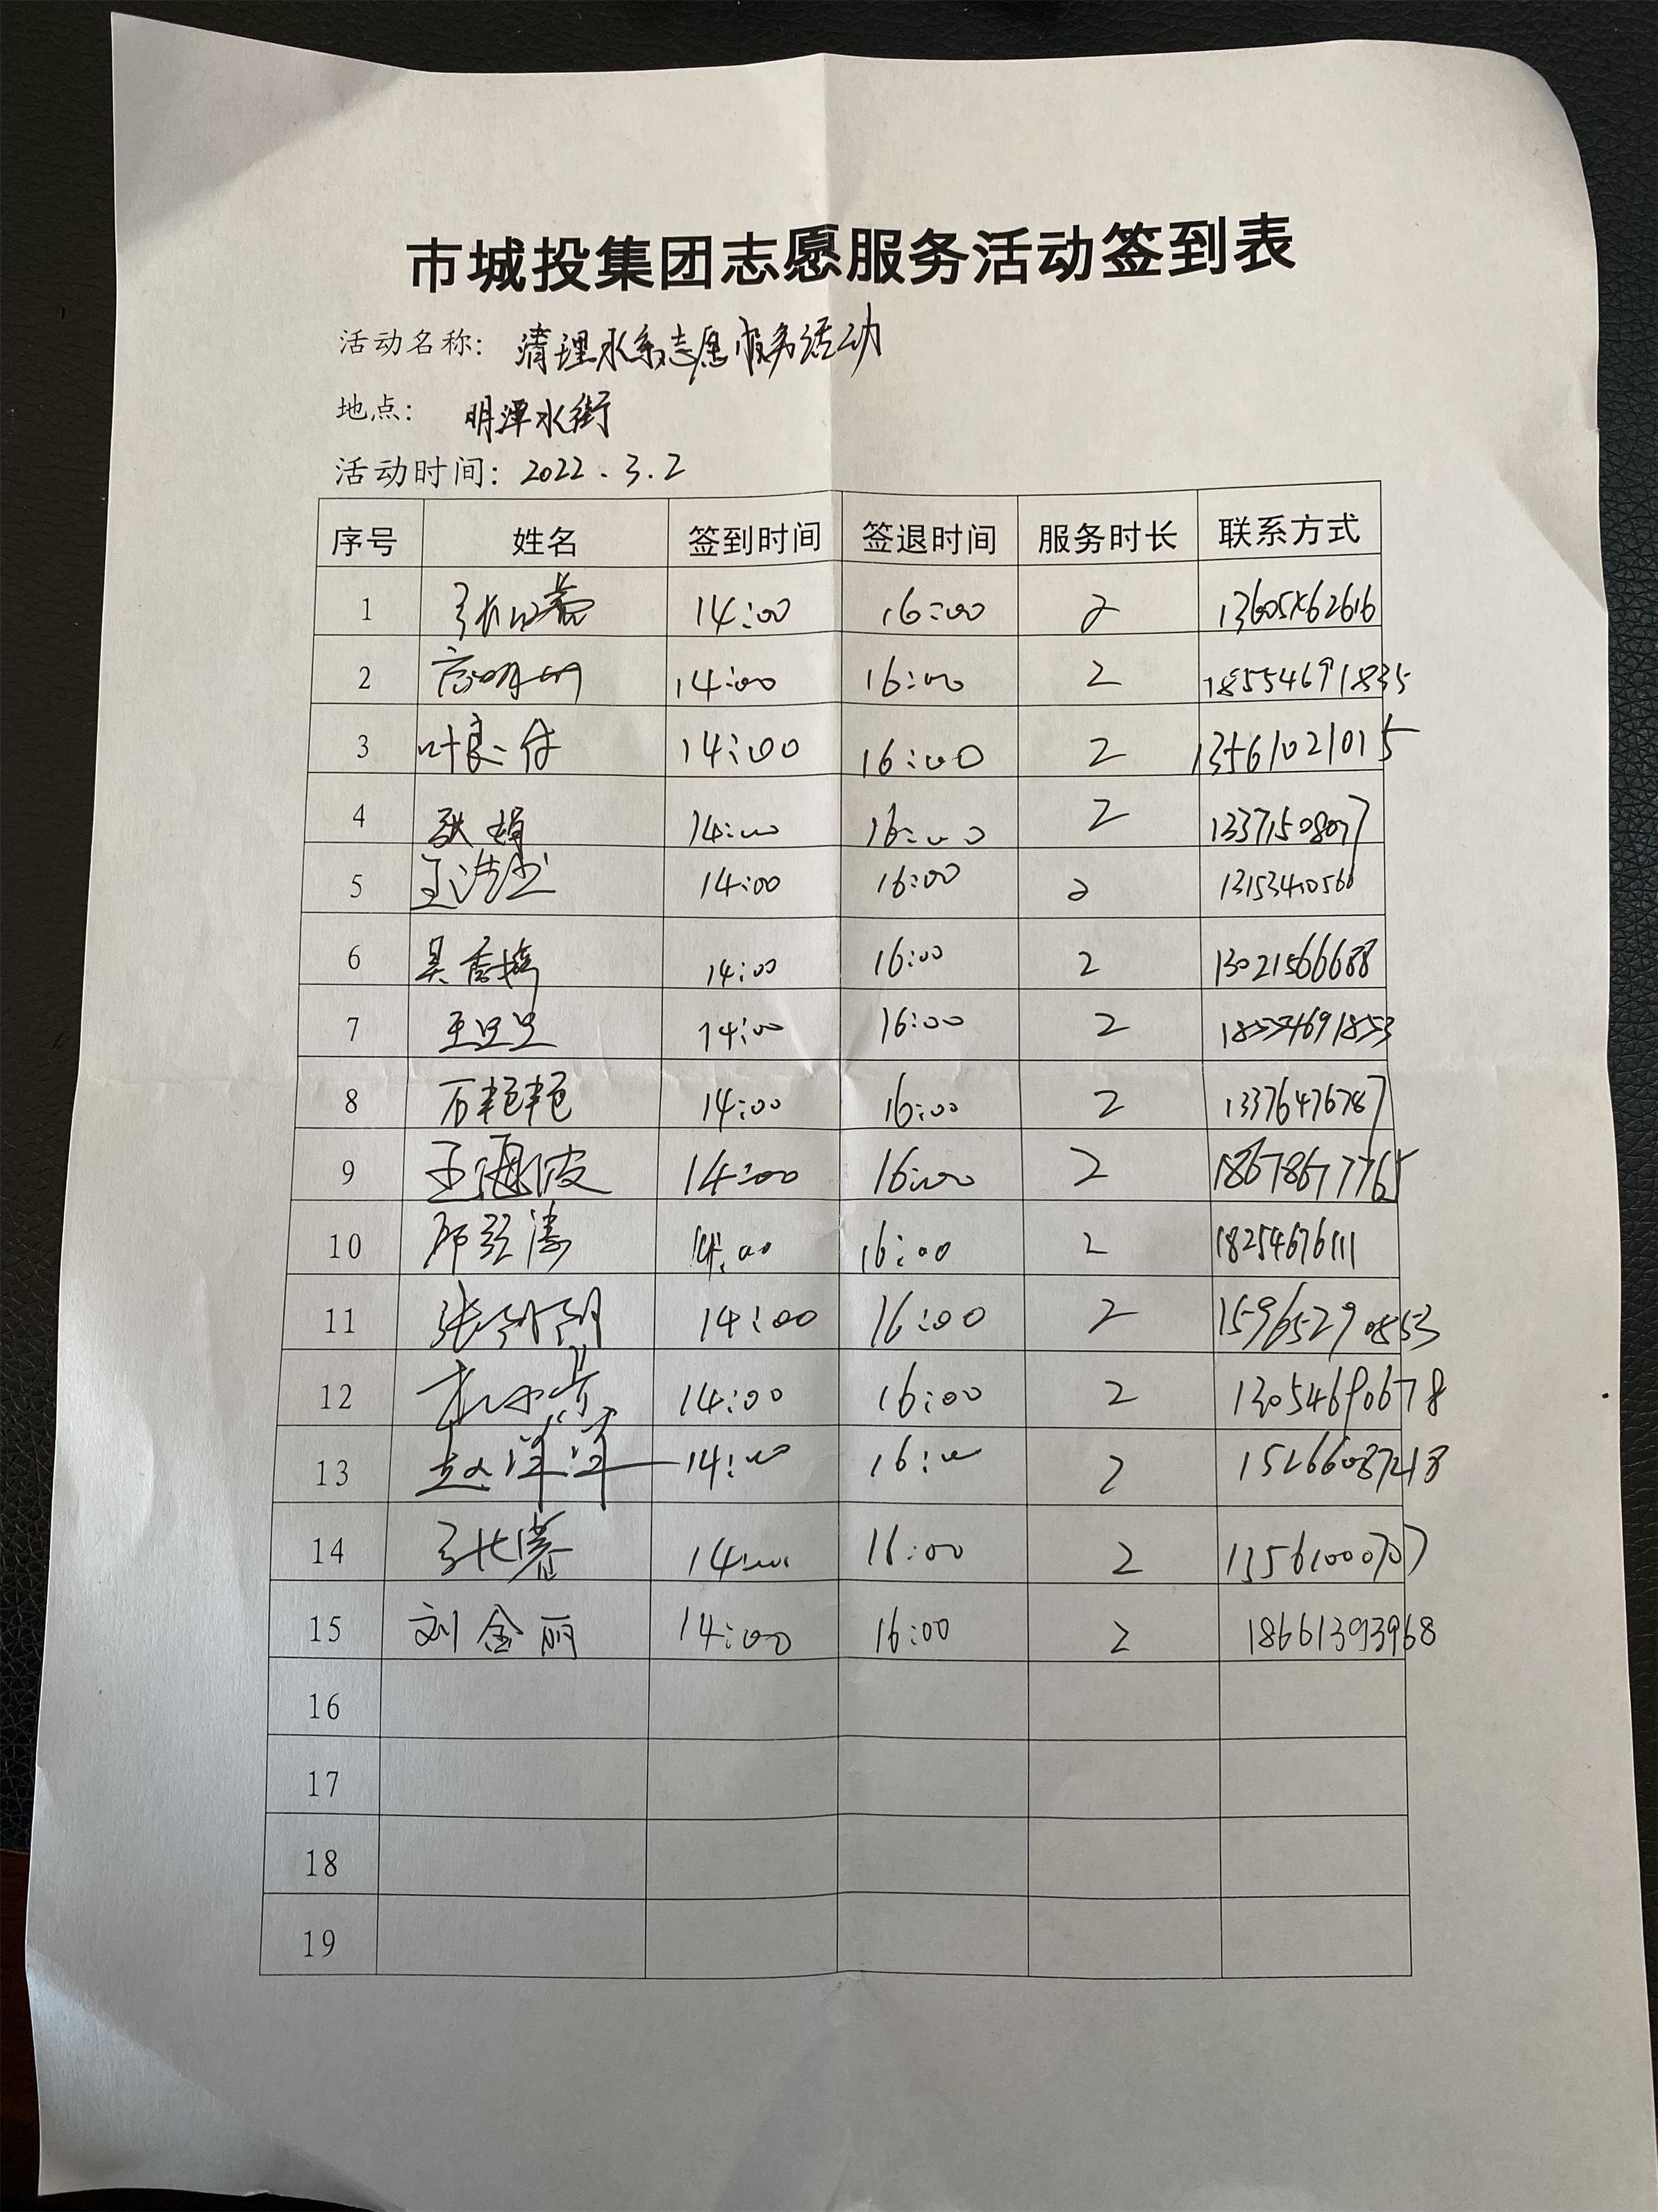 市城投集团志愿服务活动签到表
活动名称: 清理水系志愿服务活动
地点: 明潭水街
活动时间: 2022.3.2
序号 姓名 签到时间 签退时间 服务时长 联系方式
1 14:00 16:00 2 13605462616
2 14:00 16:00 2 18554691835
3 14:00 16:00 2 13561021015
4 耿娟 14:00 16:00 2 13371508077
5 14:00 16:00 2
6 14:00 16:00 2 13021566688
7 14:00 16:00 2 18554691853
8 石艳艳 14:00 16:00 2 13376476787
9 王海波 14:00 16:00 2 18678677765
10 14:00 16:00 2 18254676111
11 14:00 16:00 2 15965290853
12 14:00 16:00 2 13054690678
13 赵洋洋 14:00 16:00 2 15266087218
14 14:00 16:00 2 13561000707
15 刘金丽 14:00 16:00 2 18661393968
16
17
18
19